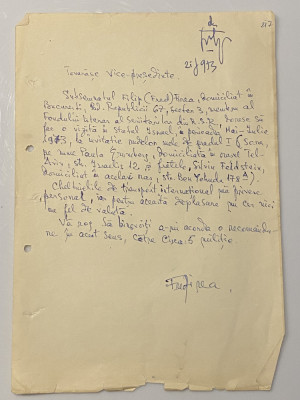 217
21/9/73
Tovarășe Vice-președinte
Subsemnatul Filip (Fred) Firea, domiciliat în
București, Bd. Republicii 67, sector 3, membru al
Fondului literar al scriitorilor din R.S.R., urmează să
fac o vizită în statul Israel, în perioada Mai-Iulie
1973, la invitația rudelor mele de gradul I (Sora,
pe nume Paula Grunberg, domiciliată în oraș Tel-
Aviv, str. Israelis 12, și fratele, Silviu Feldstein,
domiciliat în același oraș, str. Ben Yehuda 179
Cheltuielile de transport internațional mă privesc
personal, iar pentru această deplasare nu cer nici
un fel de valută.
Vă rog să binevoiți a-mi acorda o recomanda-
re în acest sens, către miliție.
Fred Firea